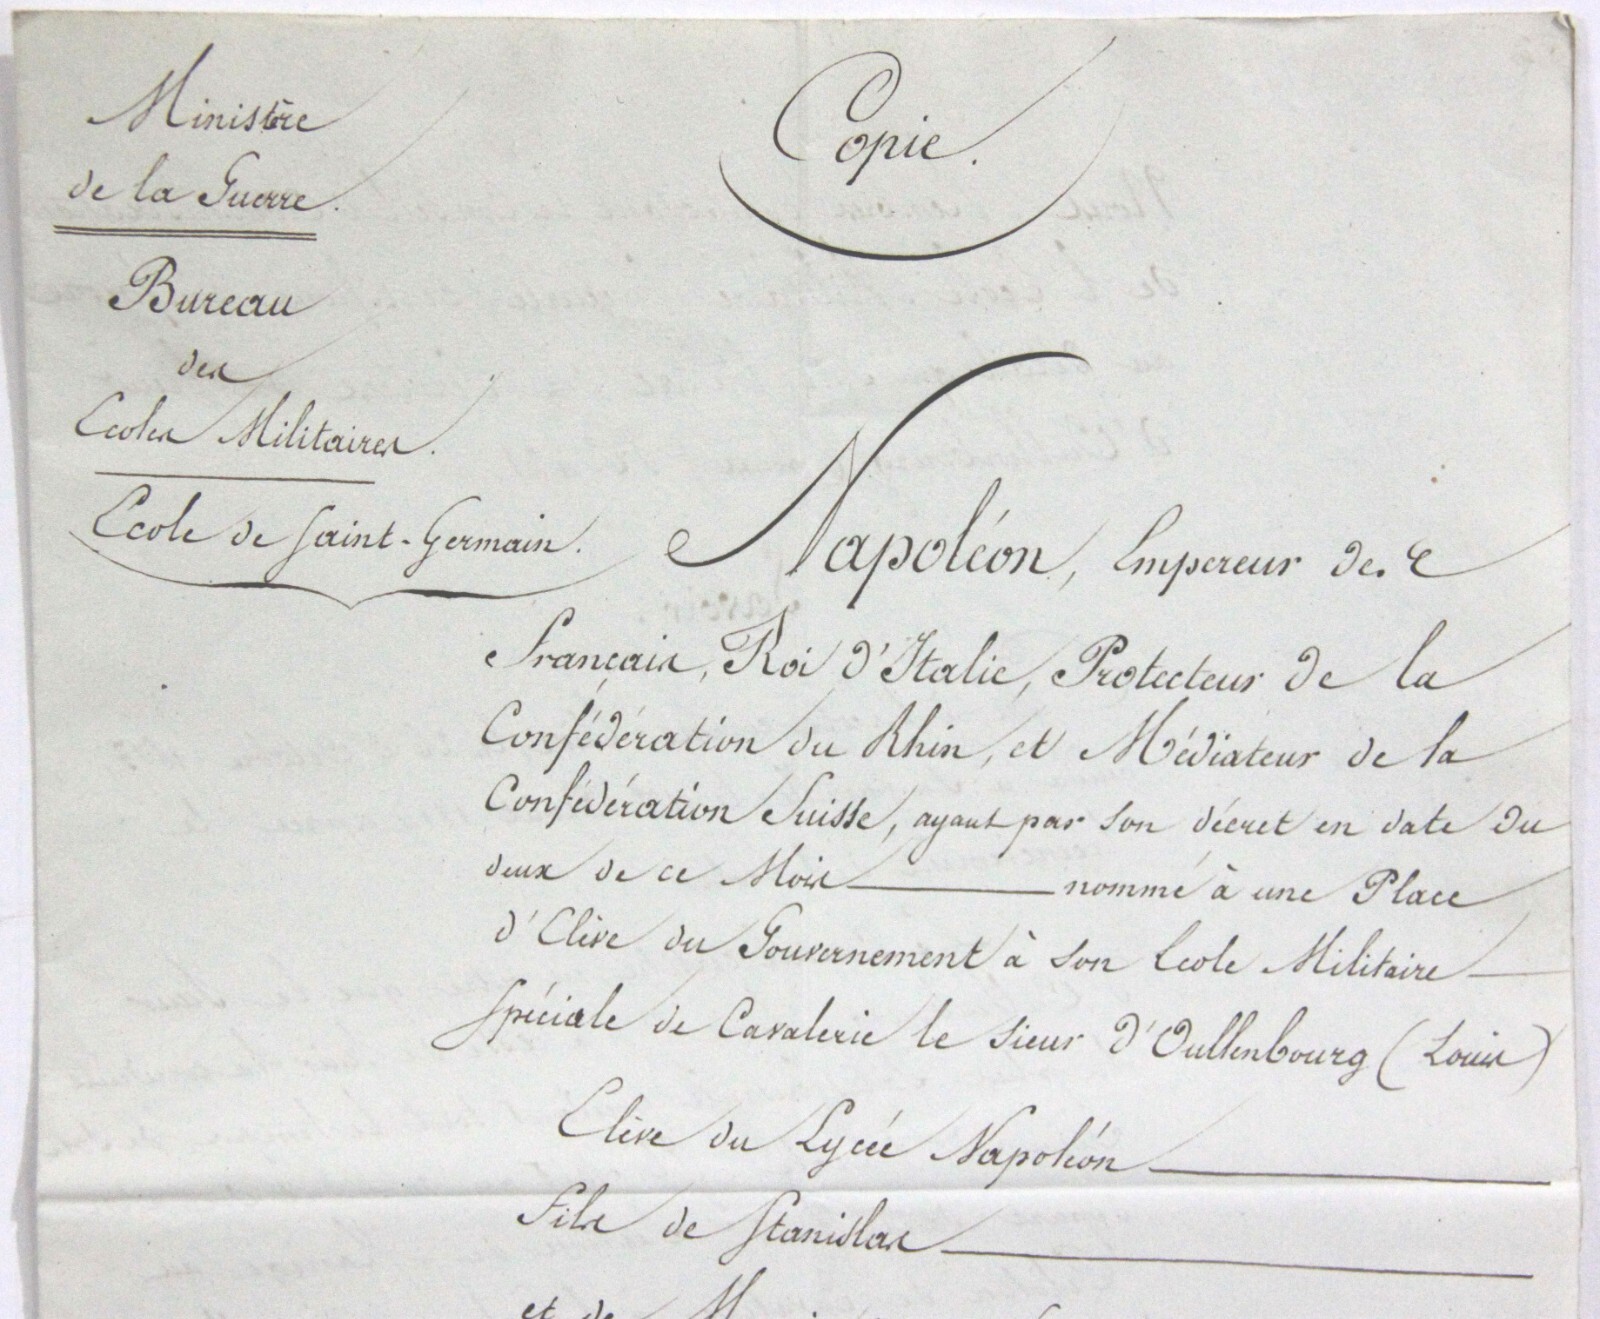 Ministère
de la Guerre.
Bureau
des
Ecoles Militaires.
Ecole de Saint-Germain.
Copie.
Napoléon, Empereur des
Français, Roi d'Italie, Protecteur de la
Confédération du Rhin, et Médiateur de la
Confédération Suisse, ayant par son décret en date du
deux de ce Mois nommé à une Place
d'Elève du Gouvernement à son Ecole Militaire
Spéciale de Cavalerie le sieur d'Oullenbourg (Louis)
Elève du Lycée Napoléon
Fils de Stanislas
et de